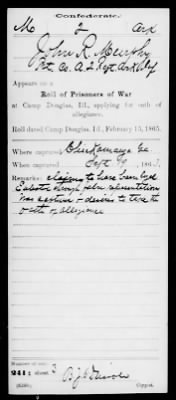 Confederate.
M 2 Ark
John R. Murphy
Pvt. Co. A, 2 Reg't Ark Inf.
Appears on a
Roll of Prisoners of War
at Camp Douglas, Ill., applying for oath of
allegiance.
Roll dated Camp Douglas, Ill., February 15, 1865.
Where captured Chickamauga Ga
When captured Sept 19, 1863.
Remarks: Claims to have been loyal
Enlisted through false representations
was captured & desires to take the
Oath of allegiance
Number of roll:
241; sheet 3
Copyist.